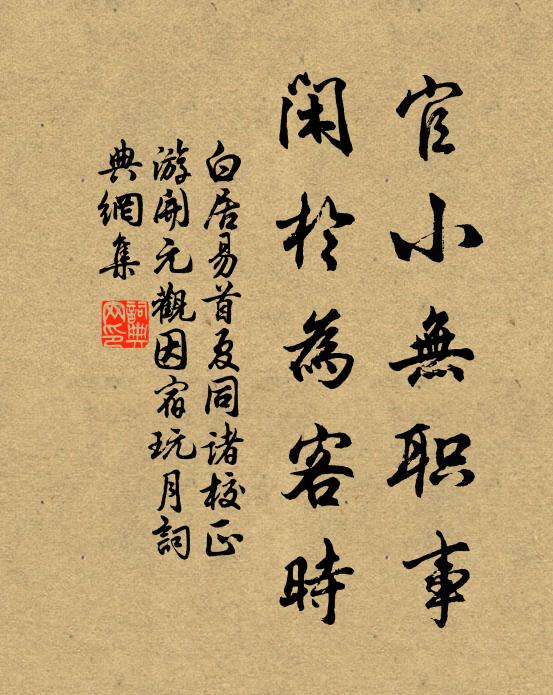 官小無职事
閑於為客時
白居易首夏同诸校正
游開元觀因宿玩月詞
典網集
詞典
网印